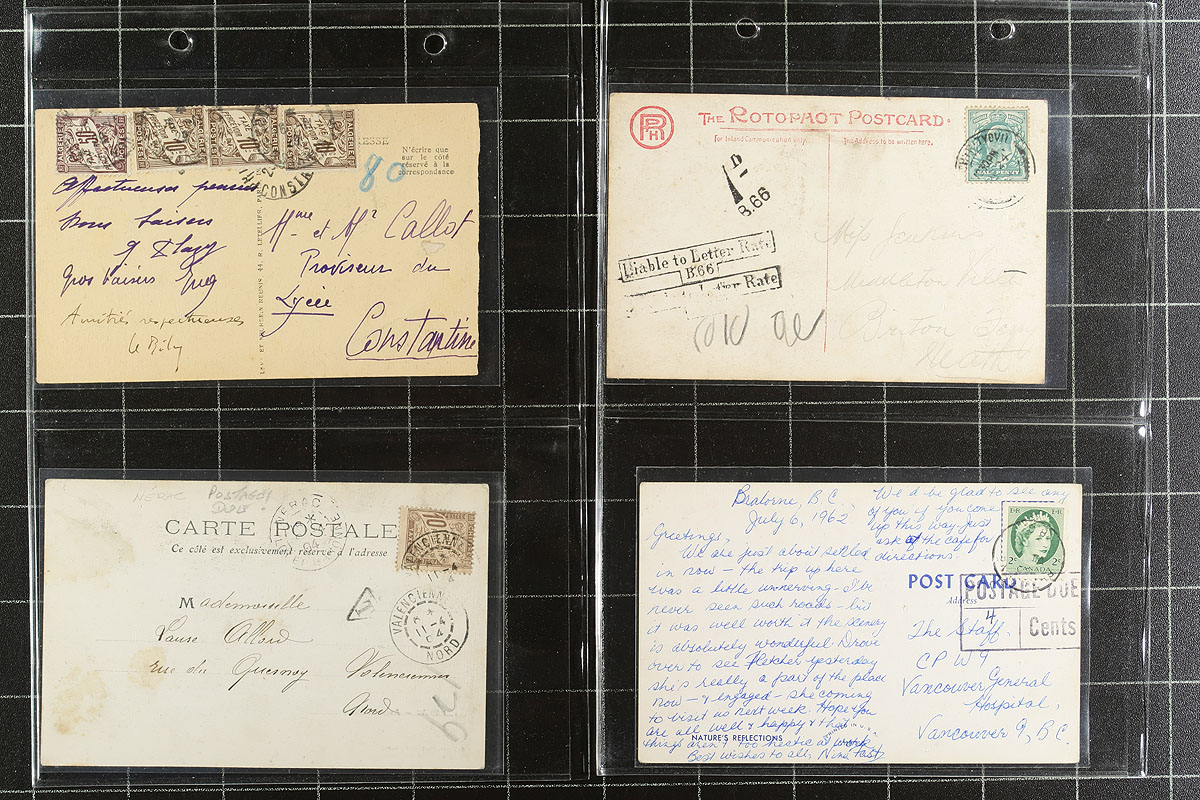 50
10
10
10
CONSTANTINE
ADRESSE
N'écrire que
sur le côté
réservé à la
correspondance
80
Affectueuses pensées
Bons baisers
Gros baisers
Amitiés respectueuses
Mme et Mr Callot
Proviseur du
Lycée
Constantine
THE ROTOPHOT POSTCARD.
RPH
For Inland Communication only.
The Address to be written here.
HALFPENNY
1 D
B.66
Liable to Letter Rate
B66
Letter Rate
Miss Jenkins
Neath
NÉRAC POSTAGE
DUE
NERAC
CARTE POSTALE
Ce côté est exclusivement réservé à l'adresse
10
T
VALENCIENNES
11-4
04
NORD
Mademoiselle
Laure Allard
rue du Quesnoy Valenciennes
Nord
Bralorne, B.C.
July 6, 1962
Greetings,
We are just about settled
in now - the trip up here
was a little unnerving - I've
never seen such roads - but
it was well worth it the scenery
is absolutely wonderful. Drove
over to see Fletcher yesterday
she's really a part of the place
now - & engaged - she coming
to visit us next week. Hope you
are all well & happy & that
things aren't too hectic at work
Best wishes to all, Nina
We'd be glad to see any
of you if you come
up this way - just
ask at the cafe for
directions.
NATURE'S REFLECTIONS
E II R
E II R
2¢
2¢
CANADA
POST CARD
Address
POSTAGE DUE
4
Cents
The Staff,
CPW9
Vancouver General
Hospital,
Vancouver 9, B.C.